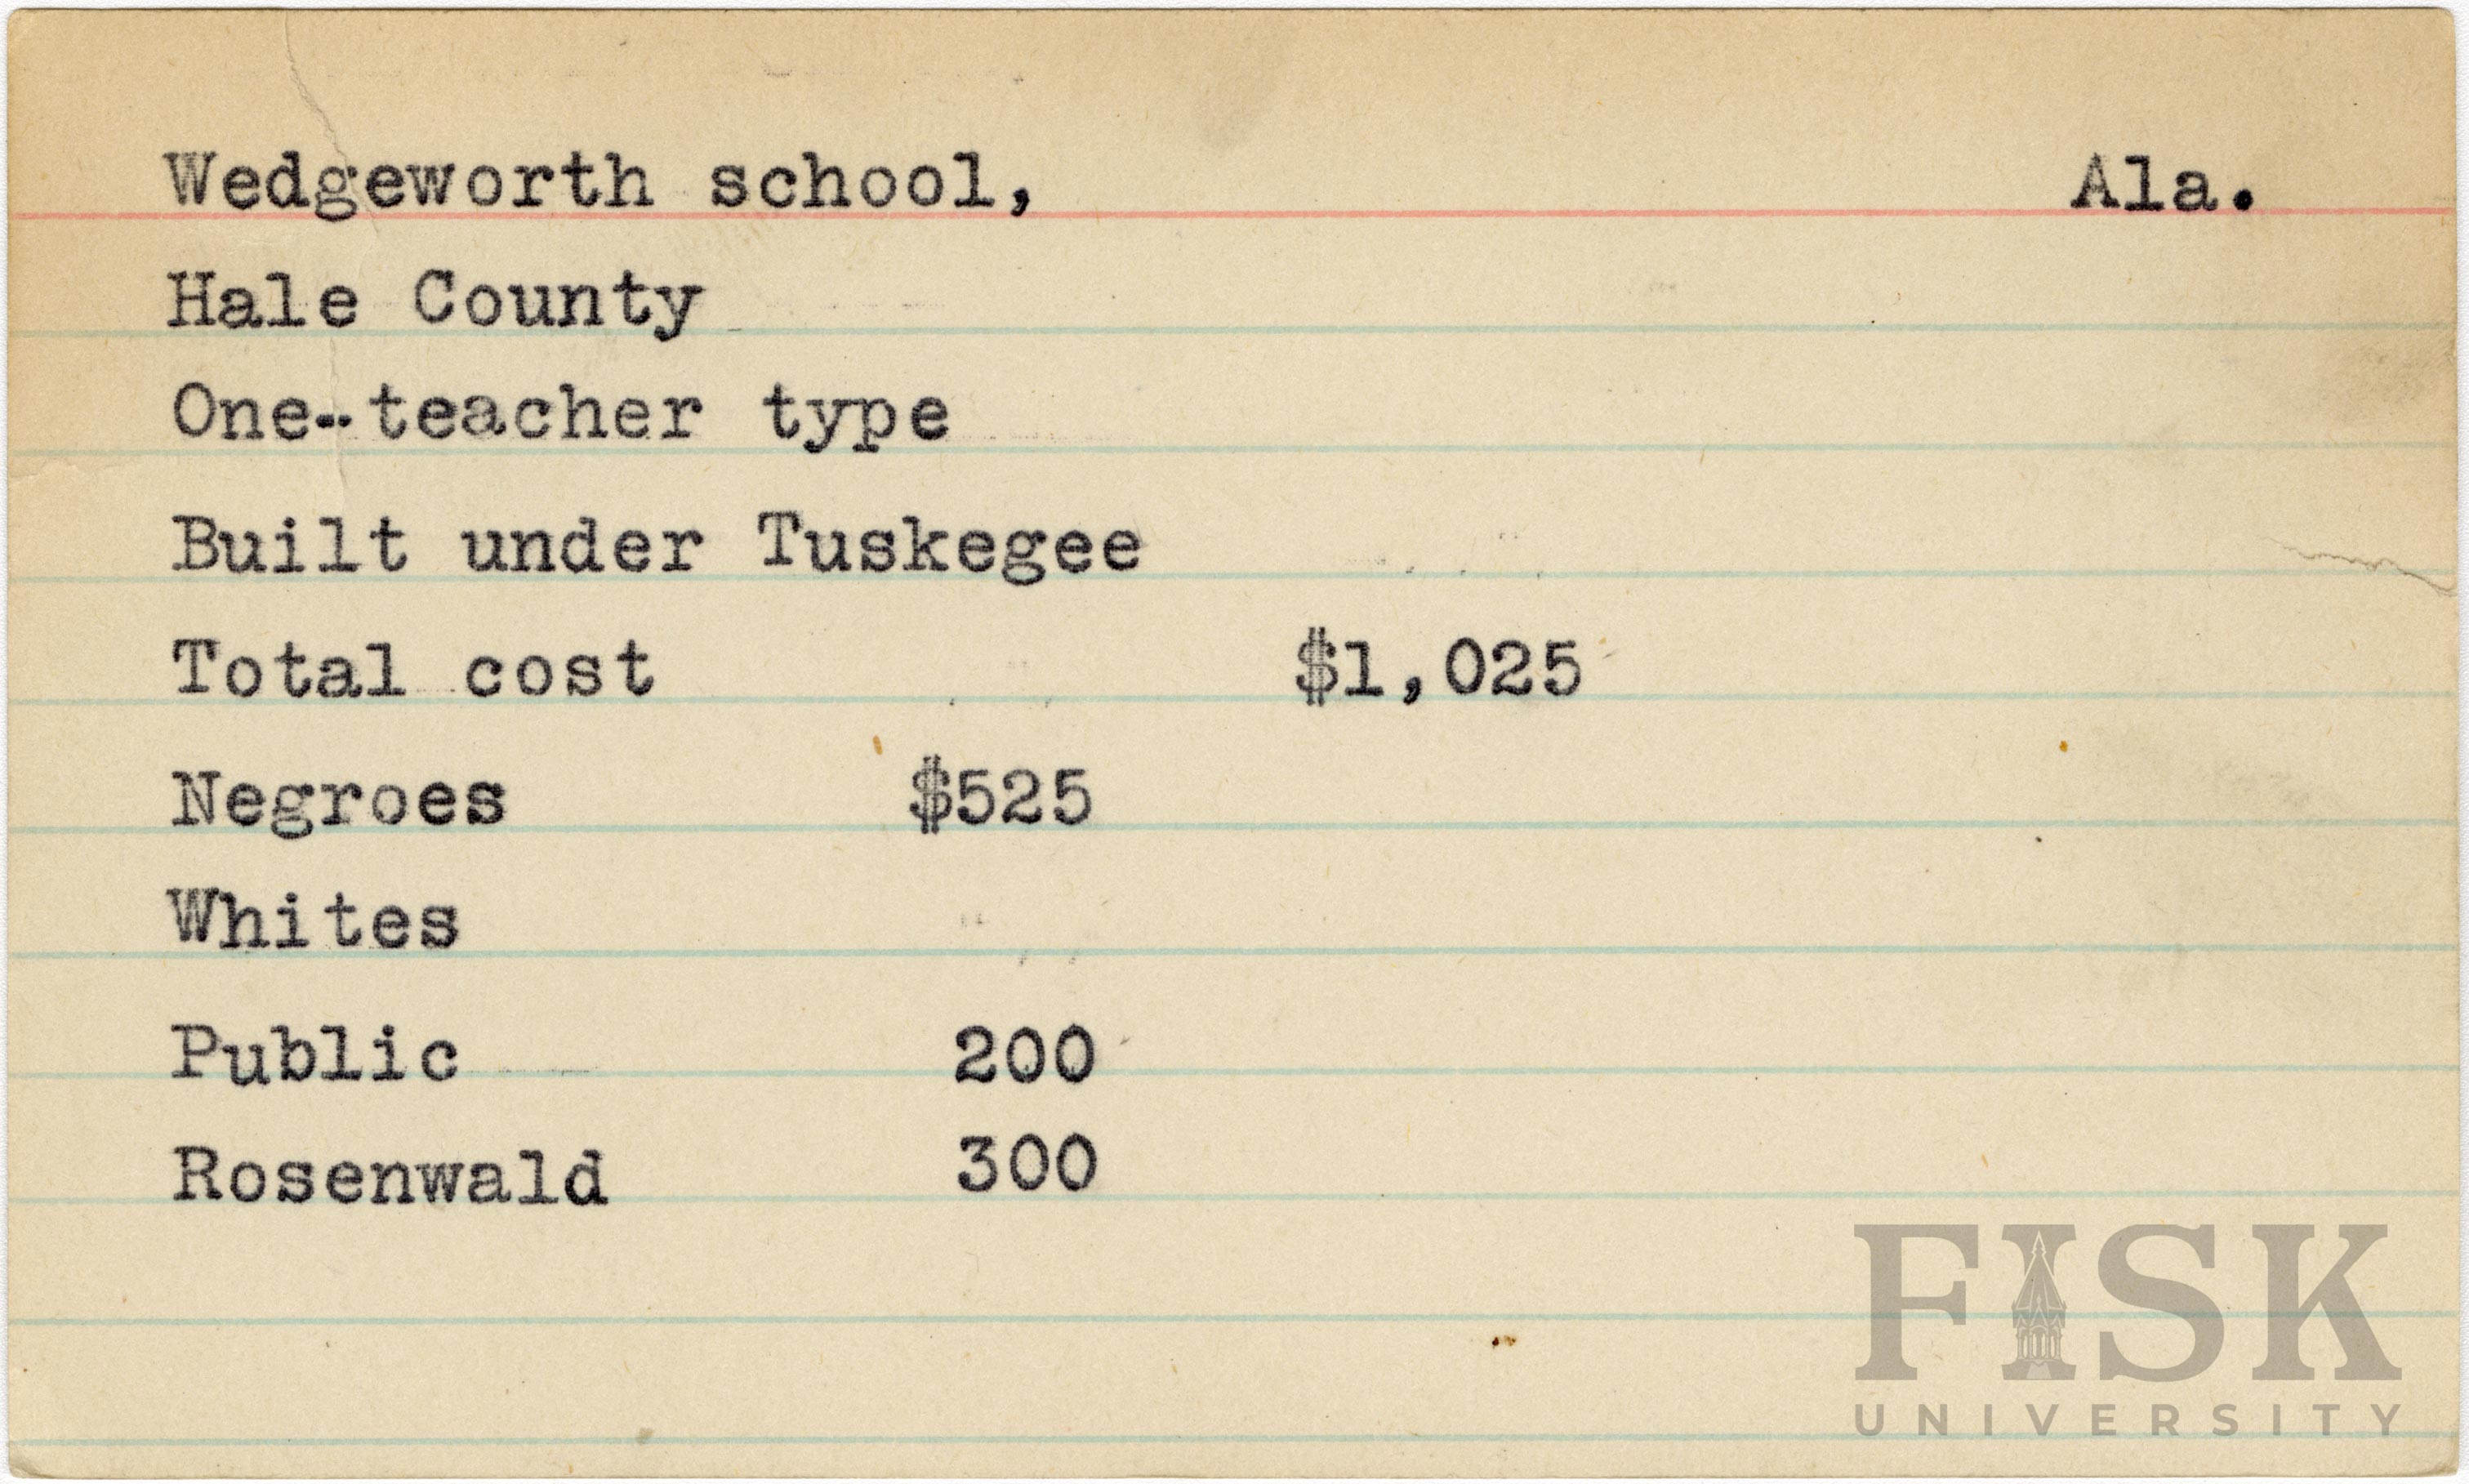 Wedgeworth school, Ala.
Hale County
One--teacher type
Built under Tuskegee
Total cost $1,025
Negroes $525
Whites
Public 200
Rosenwald 300
FISK
UNIVERSITY